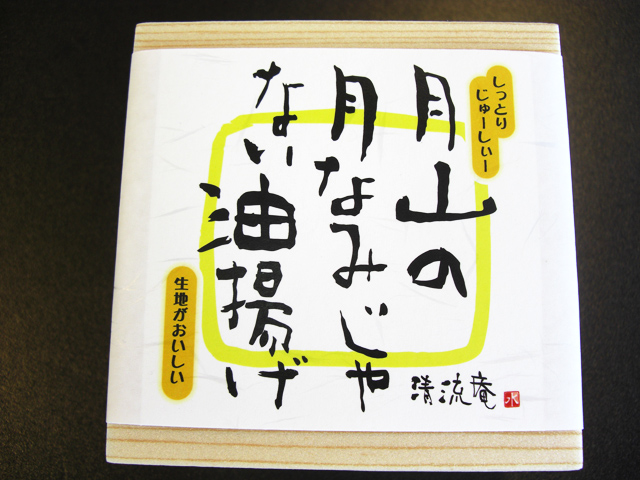 しっとり
じゅーしぃー
月山の
月なみじゃ
ない油揚げ
生地がおいしい
清流庵
水